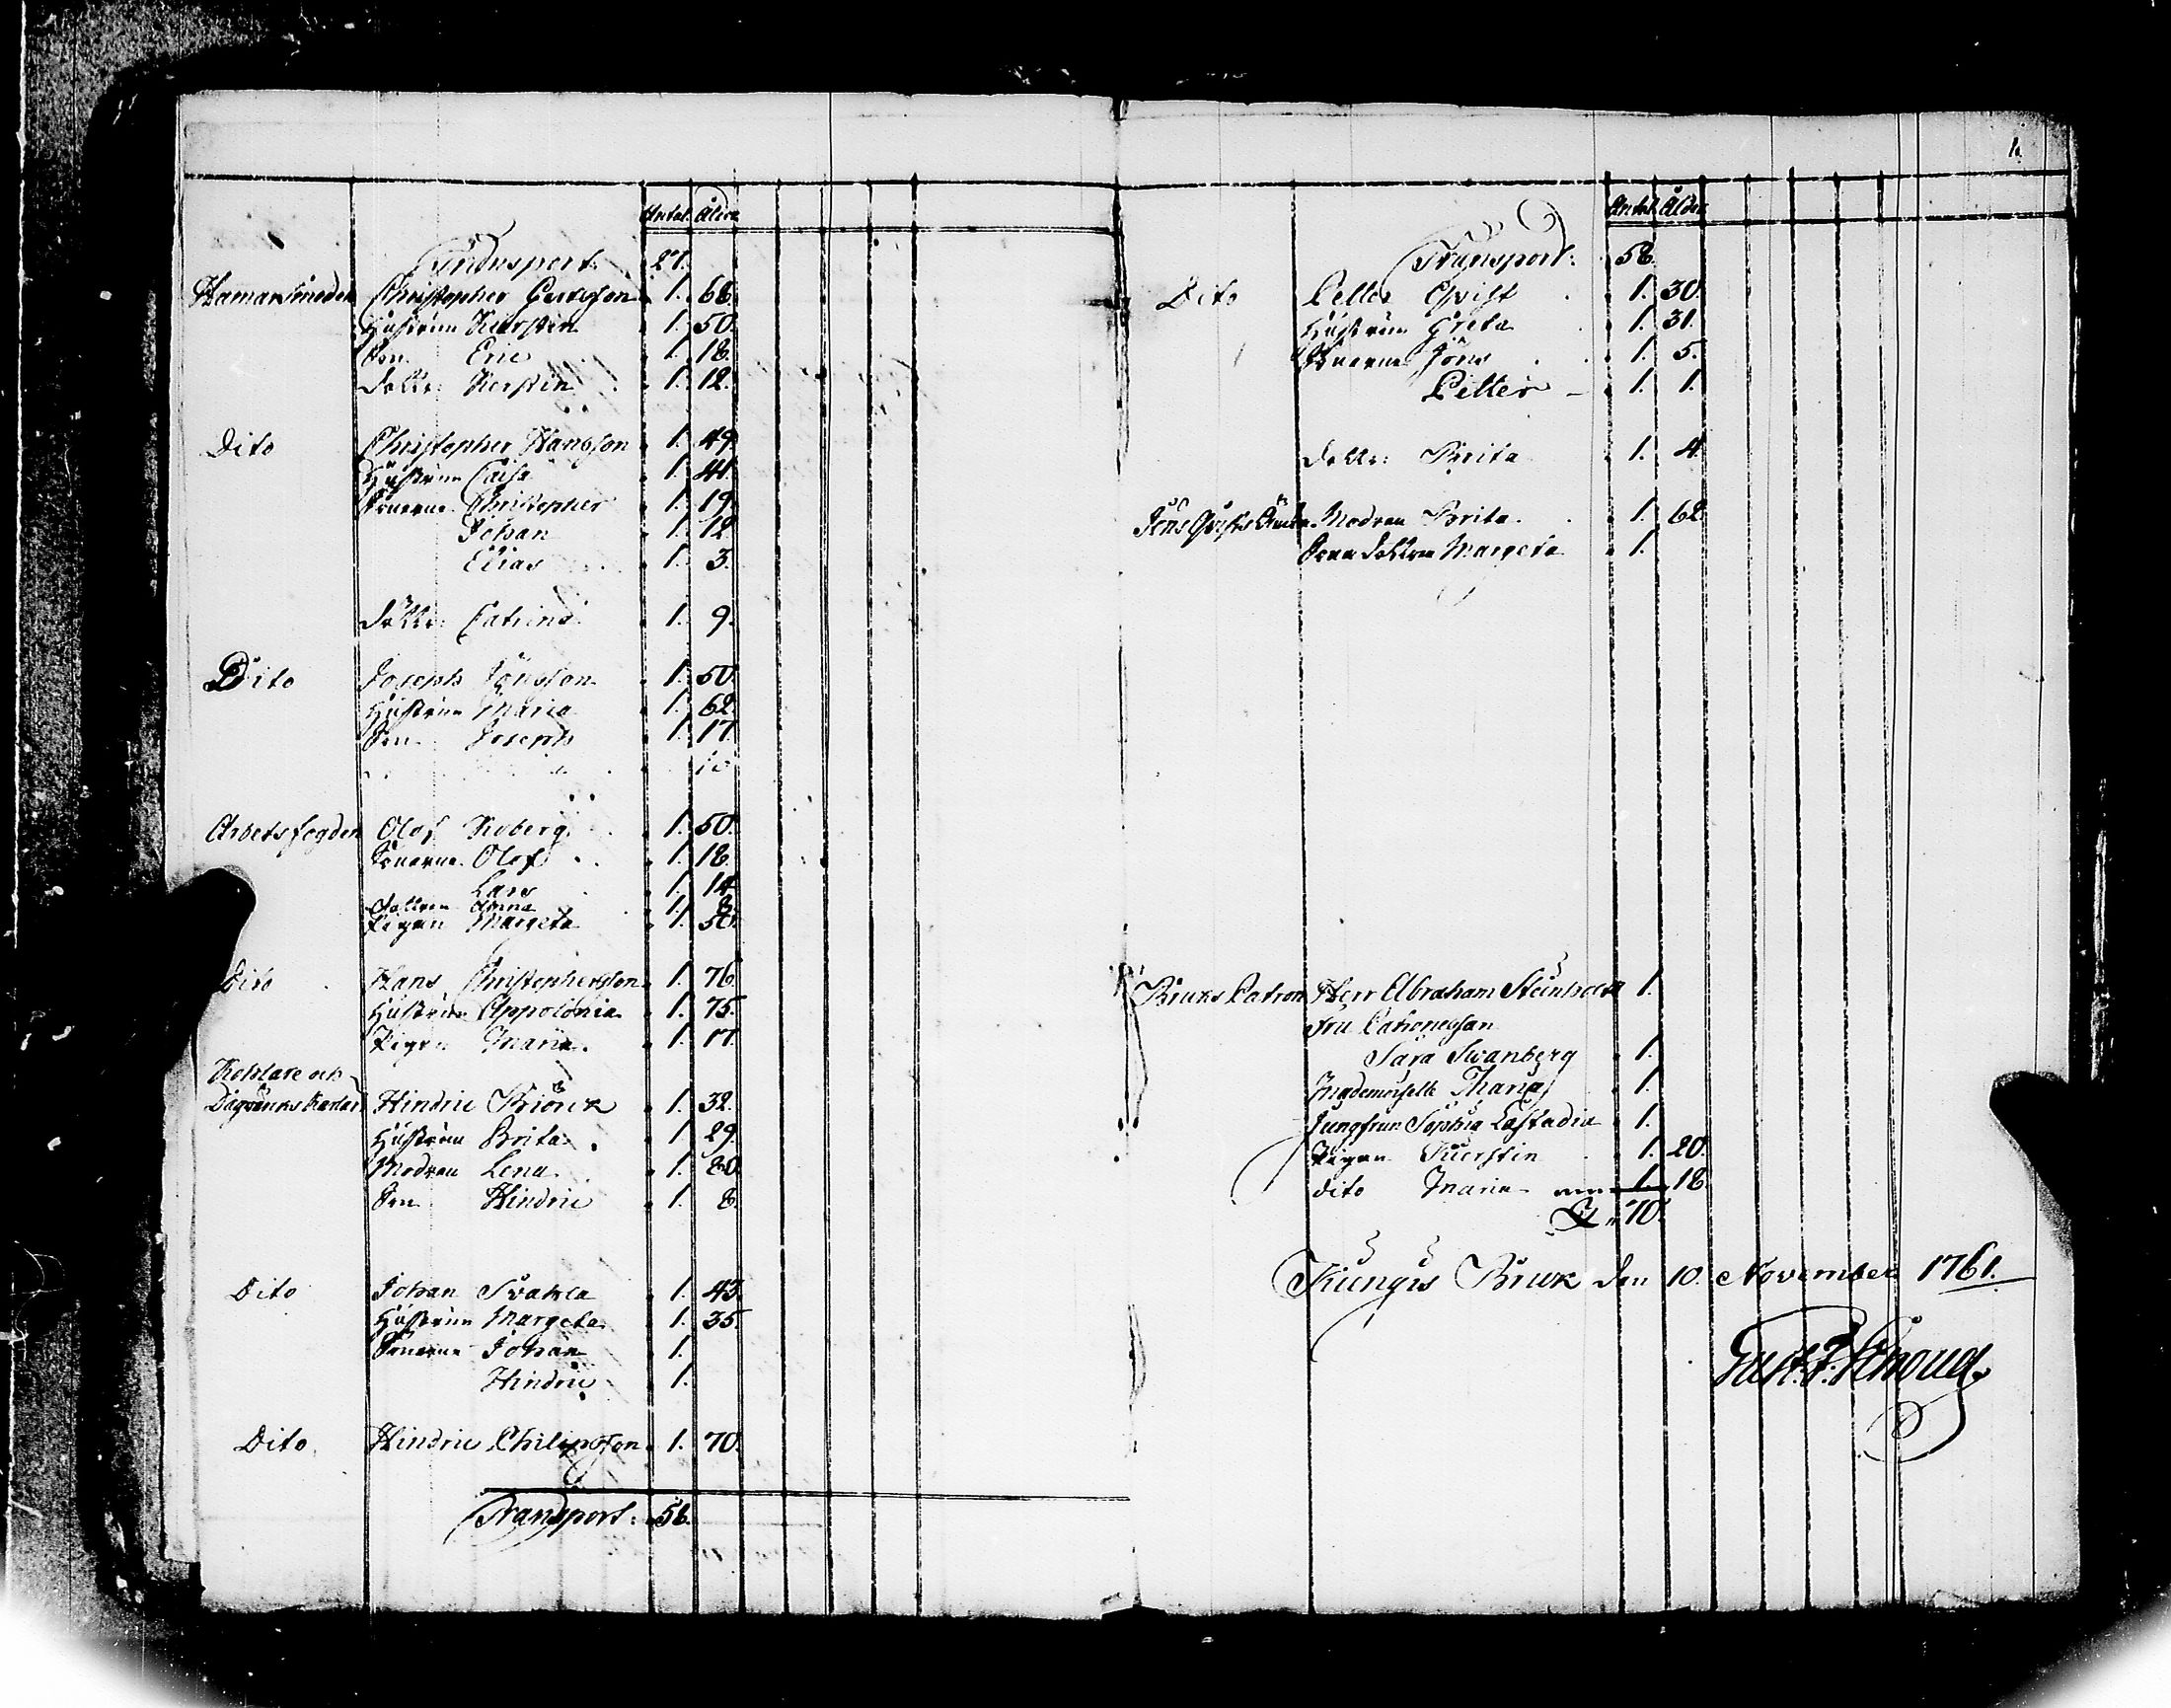 Antal. Ålder
Transport. 27.
Hamarsmeden Christopher Gustafson 1. 68.
Hustrun Kierstin 1. 50.
Son Eric 1. 18.
Dottr: Kerstin 1. 12.
Dito Christopher Hansson 1. 49.
Hustrun Caisa 1. 41.
Sönerne Christopher 1. 19.
Johan 1. 12.
Elias 1. 3.
Dottr: Catrina 1. 9.
Dito Joseph Jönsson 1. 50.
Hustrun Maria 1. 62.
Son Joseph 1. 17.
Arbetsfogden Olof Roberg 1. 50.
Sönerne Olof 1. 18.
Lars 1. 14.
Dottren Anna 1. 8.
Pigan Margeta 1. 50.
Dito Hans Christophersson 1. 76.
Hustrun Appolonia 1. 75.
Pigan Maria 1. 17.
Kohlare och
Dagværks Karlar Hindric Biörck 1. 32.
Hustrun Brita 1. 29.
Modren Lena 1. 80.
Son Hindric 1. 8.
Dito Johan Svahla 1. 43.
Hustrun Margeta 1. 35.
Sönerne Johan 1.
Hindric 1.
Dito Hindric Philipsson 1. 70.
Transport: 58.
1.
Antal. Ålder
Transport: 58.
Dito Petter Qvist 1. 30.
Hustrun Greta 1. 31.
Sönerne Jöns 1. 5.
Petter 1. 1.
Dottr: Brita 1. 4.
Jöns Qvists Modren Brita 1. 62.
Sonedottren Margeta 1.
Bruks Patron Herr Abraham Steinholtz 1.
Fru Patronessan
Sara Swanberg 1.
Madmoiselle 1.
Jungfrun Sophia Læstadia 1.
Pigan Kierstin 1. 20.
dito Maria 1. 18.
70.
Kungs Bruk den 10. November 1761.